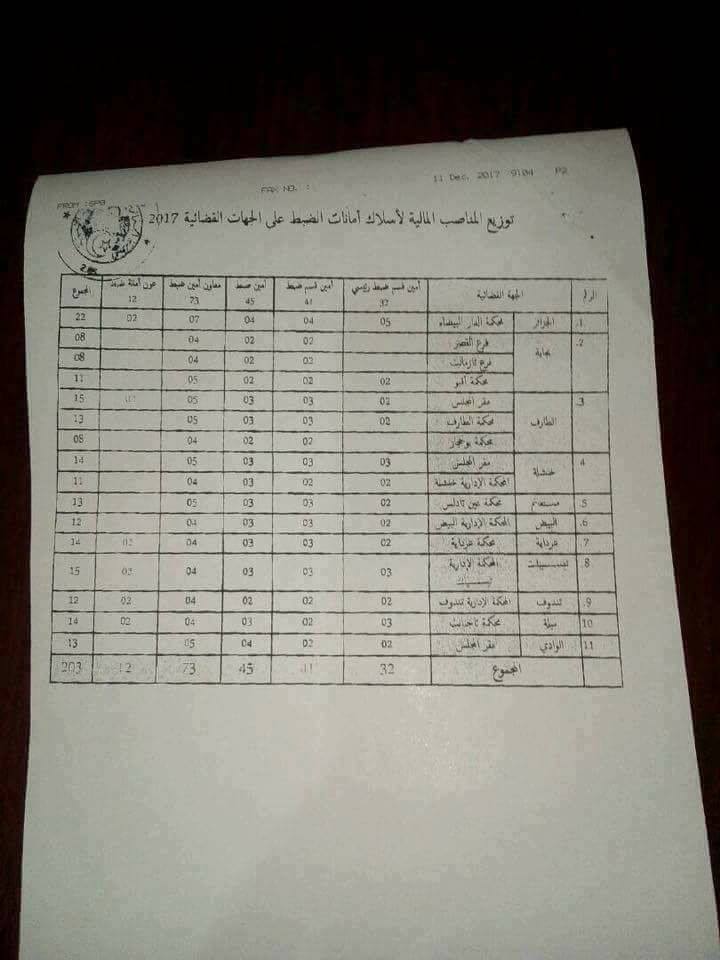 11 Dec. 2017 9:04 P2
FAX NO. :
FROM :
توزيع المناصب المالية لأسلاك أمانات الضبط على الجهات القضائية 2017
الرقم الجهة القضائية أمين قسم ضبط رئيسي أمين قسم ضبط أمين ضبط معاون أمين ضبط عون أمانة ضبط المجموع
32 41 45 73 12
1. الجزائر محكمة الدار البيضاء 05 04 04 07 02 22
2. بجاية فرع القصر 02 02 04 08
فرع تازمالت 02 02 04 08
محكمة أقبو 02 02 02 05 11
3. الطارف مقر المجلس 02 03 03 05 15
محكمة الطارف 02 03 03 05 13
محكمة بوحجار 02 02 04 08
4 خنشلة مقر المجلس 03 03 03 05 14
المحكمة الإدارية خنشلة 02 02 03 04 11
5. مستغانم محكمة عين تادلس 02 03 03 05 13
6. البيض المحكمة الإدارية البيض 02 03 03 04 12
7. غرداية محكمة غرداية 02 03 03 04 02 14
8. تيسمسيلت المحكمة الإدارية 03 03 03 04 02 15
9. تندوف المحكمة الإدارية تندوف 02 02 02 04 02 12
10 ميلة محكمة تاجنانت 03 02 03 04 02 14
11 الوادي مقر المجلس 02 02 04 05 13
المجموع 32 41 45 73 12 203